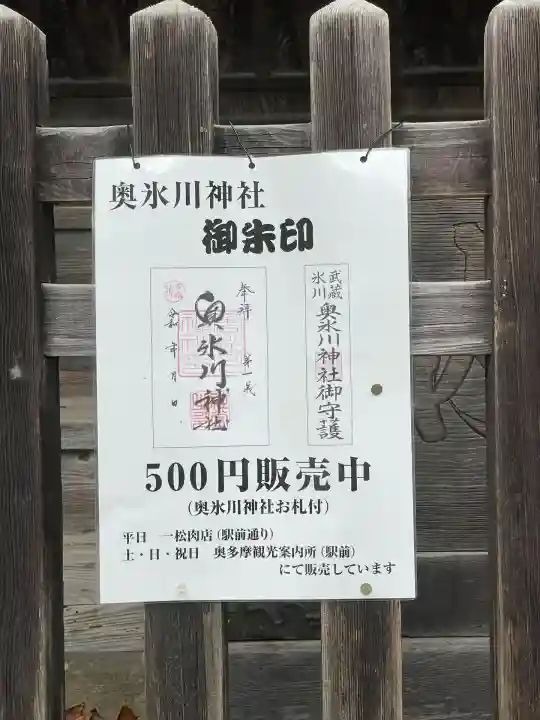 奥氷川神社
御朱印
奉拝
奥氷川神社
令和 年 月 日
武蔵
氷川
奥氷川神社御守護
500円販売中
(奥氷川神社お札付)
平日 一松肉店(駅前通り)
土・日・祝日 奥多摩観光案内所(駅前)
にて販売しています